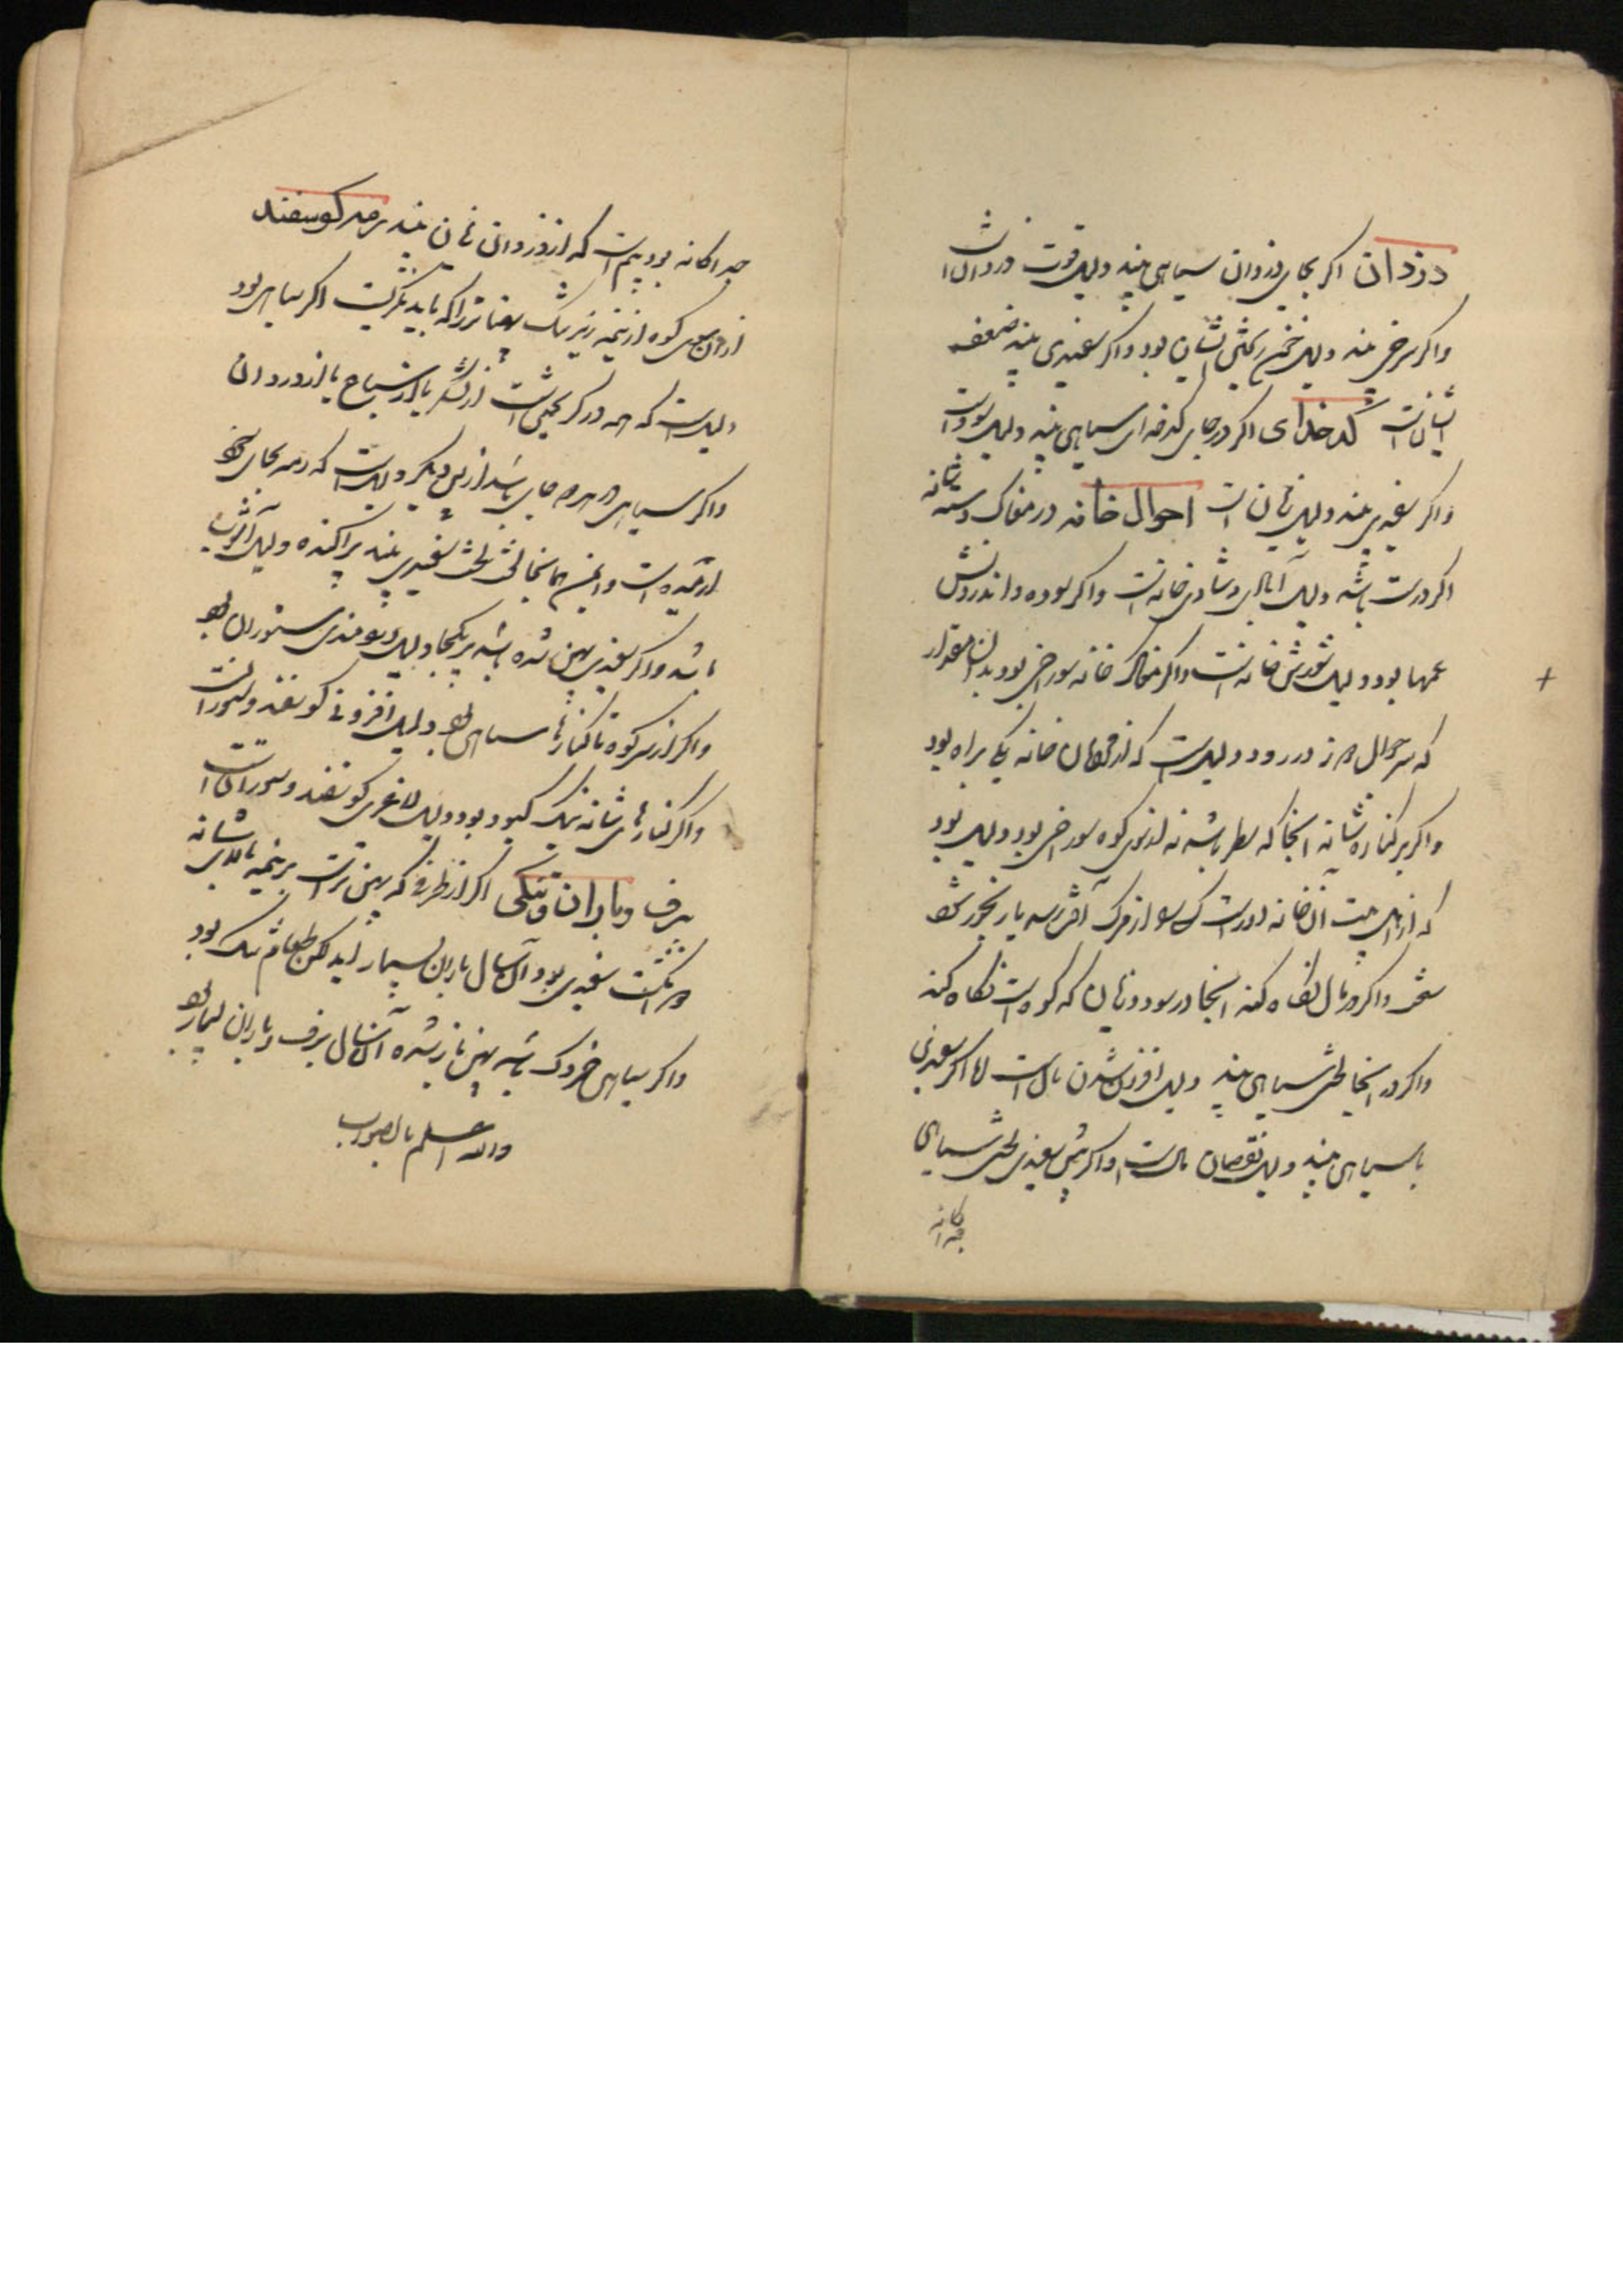 دزدان اگر بجای دزدان سیاهی بیند دلیل قوت دزدان است
و اگر سرخی بیند دلیل خون ریختن ایشان بود و اگر سفیدی بیند ضعف
ایشانست کدخدای اگر در جای کدخدای سیاهی بیند دلیل سود است
و اگر سفیدی بیند دلیل زیان است احوال خانه در مغاک دسته شانه
اگر درست باشد دلیل آبادانی و شادی خانه است و اگر بوده و اندرونش
غمها بود دلیل شورش خانه است و اگر مغاک خانه سوراخی بود بدان مقدار
که سر جوال دوز در رود دلیلست که از خانه یکی براه بود
و اگر بر کناره شانه آنجا که باشد نه از سوی کوه سوراخی بود دلیل بود
که از اهل بیت آن خانه از مرگ
و اگر در مال نگاه کند آنجا در سود و زیان که کوه است نگاه کند
و اگر در آنجا لختی سیاهی بیند دلیل افزون شدن مال است اما اگر سفیدی
با سیاهی بیند دلیل نقصان مالست و اگر پیش سفیدی لختی سیاهی
جداگانه
جداگانه بود بیم است که از دزدان زیان بیند رمه گوسفند
ازان سوی کوه از نیمه زیرینک باید نگریست اگر سیاهی بود
دلیلست که همه در گریختن است از لشکر یا از سباع یا از دزدان
و اگر سیاهی در همه جای باشد از پس دیگر دلیلست که رمه بجای خود
آرمیده است و همچنین هم آنجا لخت لخت سفیدی بیند پراکنده دلیل آشوب
باشد و اگر سفیدی پهن شده باشد بر یکجا دلیل ستوران بود
و اگر از سر کوه تا کنارها سیاهی بود دلیل افزونی گوسفند و ستورانست
و اگر کنارهای شانه تنک کبود بود دلیل لاغری گوسفند و ستورانست
برف و باران و تنگی اگر از طرفی که پهن ترست بر نیمه بالای شانه
سفیدی بود آن سال باران بسیار آید لکن طعام تنک بود
و اگر سیاهی خردک باشد پهن باز شده آن سال برف و باران بسیار بود
والله اعلم بالصواب